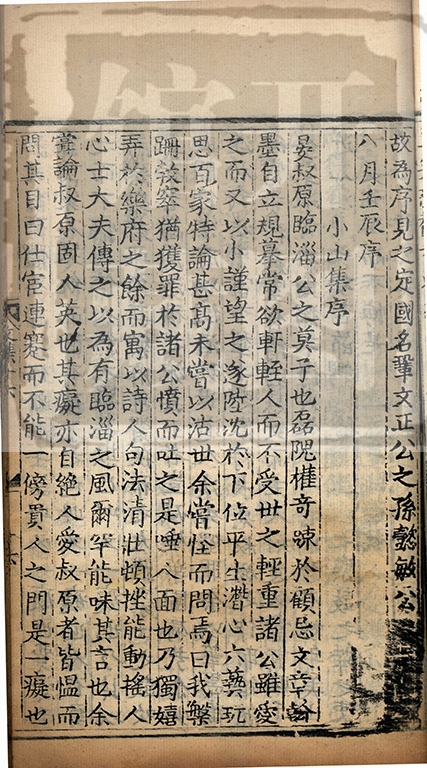 故為序見之定國名鞏文正公之孫懿敏公
八月壬辰序
小山集序
晏叔原臨淄公之莫子也磊隗權奇踈於顧忌文章翰
墨自立規摹常欲軒輊人而不受世之輕重諸公雖愛
之而又以小謹望之遂陸沈於下位平生潛心六藝玩
思百家特論甚髙未嘗以沽世余嘗怪而問焉曰我槃
跚㪍窣猶獲罪於諸公憤而吐之是唾人面也乃獨嬉
弄於樂府之餘而寓以詩人句法清壯頓挫能動搖人
心士大夫傳之以為有臨淄之風爾罕能味其言也余
嘗論叔原固人英也其癡亦自絕人愛叔原者皆慍而
問其目曰仕宦連蹇而不能一傍貴人之門是一癡也